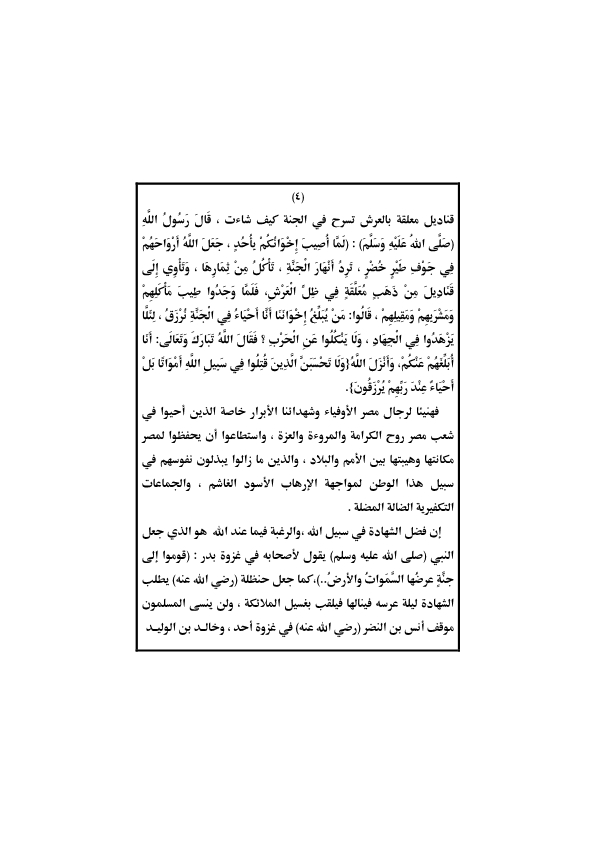 (٤)
قناديل معلقة بالعرش تسرح في الجنة كيف شاءت ، قَالَ رَسُولُ اللَّهِ
(صَلَّى اللهُ عَلَيْهِ وَسَلَّمَ) : (لَمَّا أُصِيبَ إِخْوَانُكُمْ بِأُحُدٍ ، جَعَلَ اللَّهُ أَرْوَاحَهُمْ
فِي جَوْفِ طَيْرٍ خُضْرٍ ، تَرِدُ أَنْهَارَ الْجَنَّةِ ، تَأْكُلُ مِنْ ثِمَارِهَا ، وَتَأْوِي إِلَى
قَنَادِيلَ مِنْ ذَهَبٍ مُعَلَّقَةٍ فِي ظِلِّ الْعَرْشِ، فَلَمَّا وَجَدُوا طِيبَ مَأْكَلِهِمْ
وَمَشْرَبِهِمْ وَمَقِيلِهِمْ ، قَالُوا: مَنْ يُبَلِّغُ إِخْوَانَنَا أَنَّا أَحْيَاءٌ فِي الْجَنَّةِ نُرْزَقُ ، لِئَلَّا
يَزْهَدُوا فِي الْجِهَادِ ، وَلَا يَنْكُلُوا عَنِ الْحَرْبِ ؟ فَقَالَ اللَّهُ تَبَارَكَ وَتَعَالَى: أَنَا
أُبَلِّغُهُمْ عَنْكُمْ، وَأَنْزَلَ اللَّهُ{وَلَا تَحْسَبَنَّ الَّذِينَ قُتِلُوا فِي سَبِيلِ اللَّهِ أَمْوَاتًا بَلْ
أَحْيَاءٌ عِنْدَ رَبِّهِمْ يُرْزَقُونَ}.
فهنيئا لرجال مصر الأوفياء وشهدائنا الأبرار خاصة الذين أحيوا في
شعب مصر روح الكرامة والمروءة والعزة ، واستطاعوا أن يحفظوا لمصر
مكانتها وهيبتها بين الأمم والبلاد ، والذين ما زالوا يبذلون نفوسهم في
سبيل هذا الوطن لمواجهة الإرهاب الأسود الغاشم ، والجماعات
التكفيرية الضالة المضلة .
إن فضل الشهادة في سبيل الله ،والرغبة فيما عند الله هو الذي جعل
النبي (صلى الله عليه وسلم) يقول لأصحابه في غزوة بدر : (قوموا إلى
جنَّةٍ عرضُها السَّمَواتُ والأرضُ..)،كما جعل حنظلة (رضي الله عنه) يطلب
الشهادة ليلة عرسه فينالها فيلقب بغسيل الملائكة ، ولن ينسى المسلمون
موقف أنس بن النضر (رضي الله عنه) في غزوة أحد ، وخالـد بن الوليـد